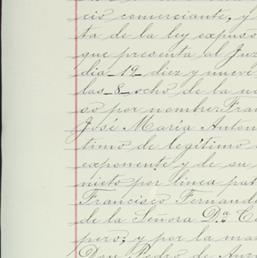 cis comerciante, y
ta de la ley expuso
que presenta al Juz
dia 19 diez y nueve
las 8 ocho de la no
co por nombre: Fran
José María Anton
timo de legitimo
exponente y de su
nieto por linea pat
Francisco Fernand
de la Señora Dª Co
pero; y por la ma
Don Pedro de